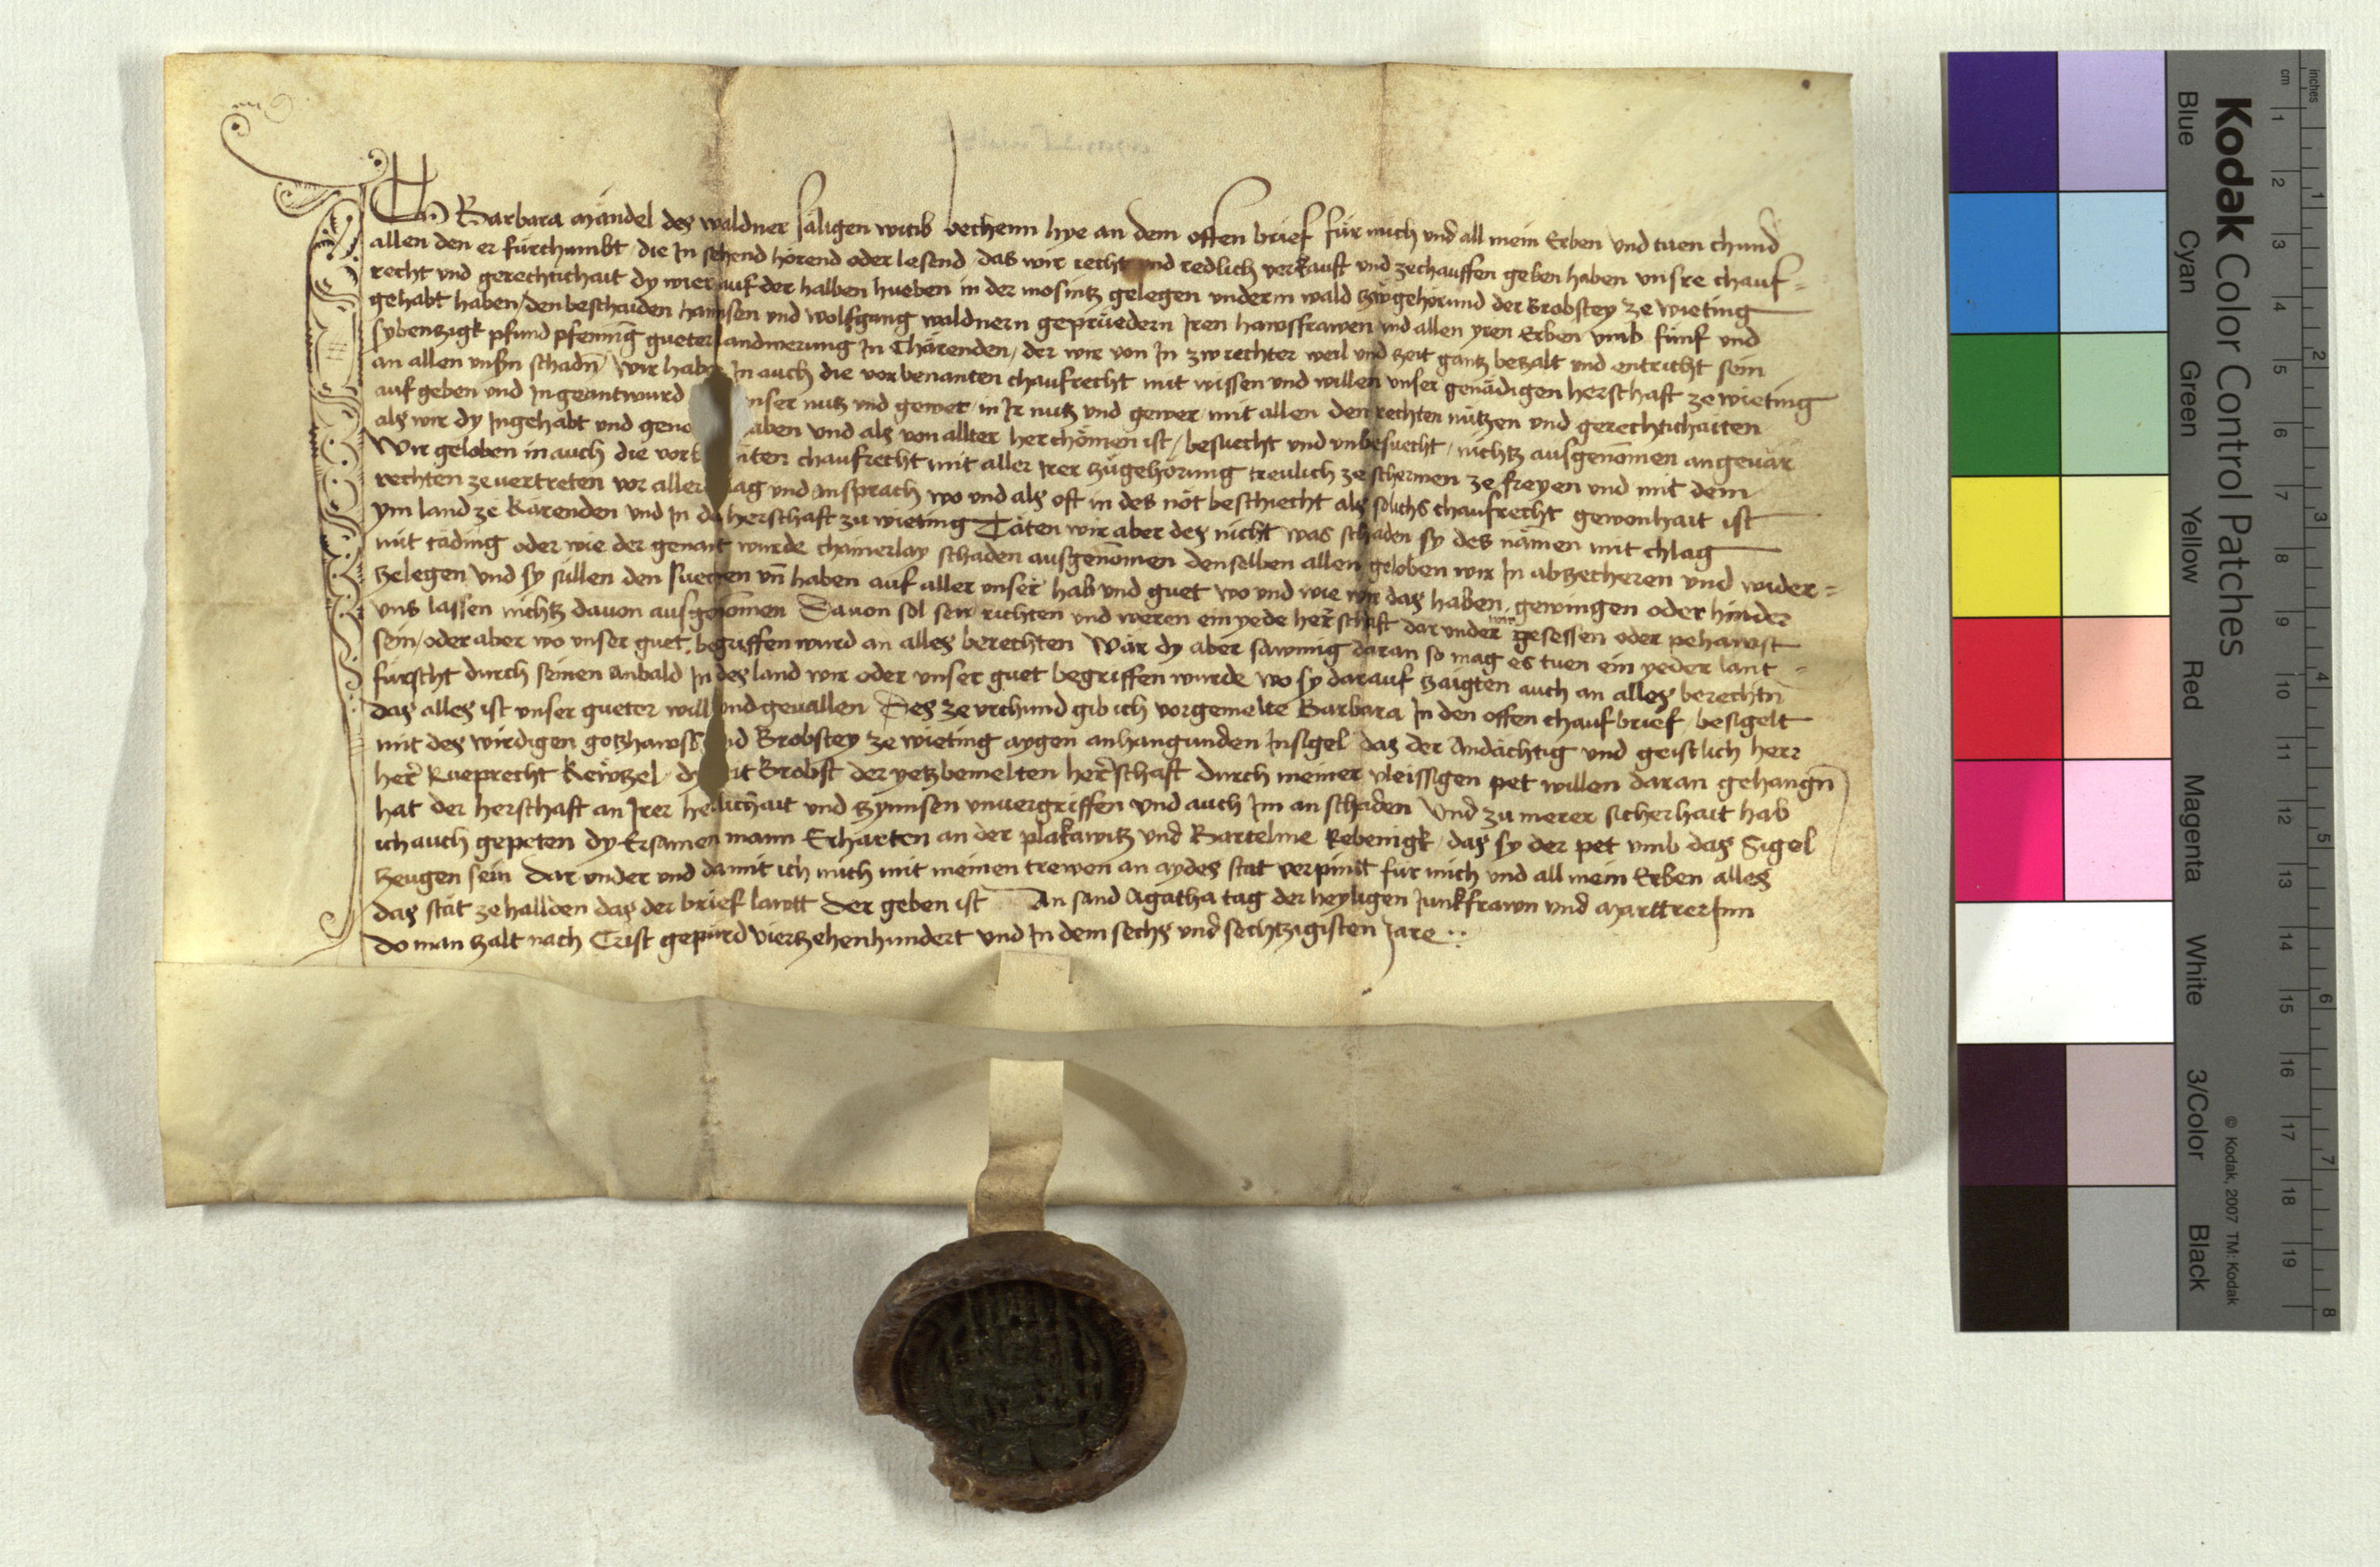 Ich Barbara Mändel des waldner säligen witib vechenn hye an dem offen brief für mich vnd all mein Erben vnd tuen chund
allen den er fürchumbt die In sehend hörend oder lesend das wir recht vnd redlich verkauft vnd zechauffen geben haben vnsre chauf=
recht vnd gerechtichait dy wier auf der halben hueben in der mosnitz gelegen vnderm wald zwgehörund der Brobstey ze wieting
gehabt haben den beschaiden hannsen vnd wolfgang waldnern geprüedern Iren hawsfrawen vnd allen yren Erben vmb fünf vnd
sybenzigk pfund pfening gueter landwerung In Chärenden der wir von In zw rechter weil vnd zeit gantz bezalt vnd entricht sein
an allen vnsern schadn Wir haben In auch die vorbenanten chaufrecht mit wissen vnd willen vnser genädigen herschaft ze wieting
auf geben vnd Ingeantwurd nser nutz vnd gewer in Ir nutz vnd gewer mit allen den rechten nützen vnd gerechtichaiten
als wir dy Ingehabt vnd geno aben vnd als von allter herchömen ist besuecht vnd vnbesuecht nichtz ausgenomen an geuär
Wir geloben in auch die vorb nten chaufrecht mit aller irer zügehörung treulich ze schermen ze freyen vnd mit dem
rechten ze vertreten vor aller lag vnd ansprach wo vnd als oft in des nöt beschiecht als solichs chaufrecht gewonhait ist
ym land ze Kärenden vnd In d herschaft zu wieting Täten wir aber des nicht was schaden sy des nämen mit chlag
mit täding oder wie der genant wurde chainerlay schaden ausgenomen denselben allen geloben wir In abzecheren vnd wider=
zelegen vnd sy süllen den suechen vn haben auf aller vnser hab vnd guet wo vnd wie wir das haben gewingen oder hinder
vns lassen nichtz dauon ausgenomen Dauon sol sew richten vnd weren ein yede herschaft dar vnder wir gesessen oder pehawst
sein oder aber wo vnser guet begriffen wurd an alles berechten Wär dy aber sawmig daran so mag es tuen ein yeder lant=
fürscht durch seinen anbald In des land wir oder vnser guet begriffen wurde wo sy darauf zaigten auch an alles berechtn
das alles ist vnser gueter will vnd geuallen Des ze vrchund gib ich vorgemelte Barbara In den offen chaufbrief besigelt
mit des wirdigen gotzhawss nd Brobstey ze wieting aygen anhangunden Insigel das der Andächtig vnd geistlich herr
her Rueprecht Kewtzel dy it Brobst der yetzbemelten herschaft durch meiner vleissigen pet willen daran gehangn
hat der herschaft an Irer herlichait vnd zynnsen vnuergriffen vnd auch Im an schaden Vnd zu merer sicherhait hab
ich auch gepeten dy Ersamen mann Erharten an der plakawitz vnd Bartelme Rebenigk das sy der pet vmb das Sigel
zeugen sein Dar vnder vnd damit ich mich mit meinen trewen an aydes stat verpintt für mich vnd all mein Erben alles
das stät ze hallden das der brief lawtt Der geben ist An sand Agatha tag der heyligen Junkfrawn vnd Marttrerinn
do man zalt nach Crist gepurd vierzehenhundert vnd In dem sechs vnd sechtzigisten Jare
Kodak Color Control Patches
Blue Cyan Green Yellow Red Magenta White 3/Color Black
© Kodak, 2007 TM: Kodak
cm 1 2 3 4 5 6 7 8 9 10 11 12 13 14 15 16 17 18 19
inches 1 2 3 4 5 6 7 8